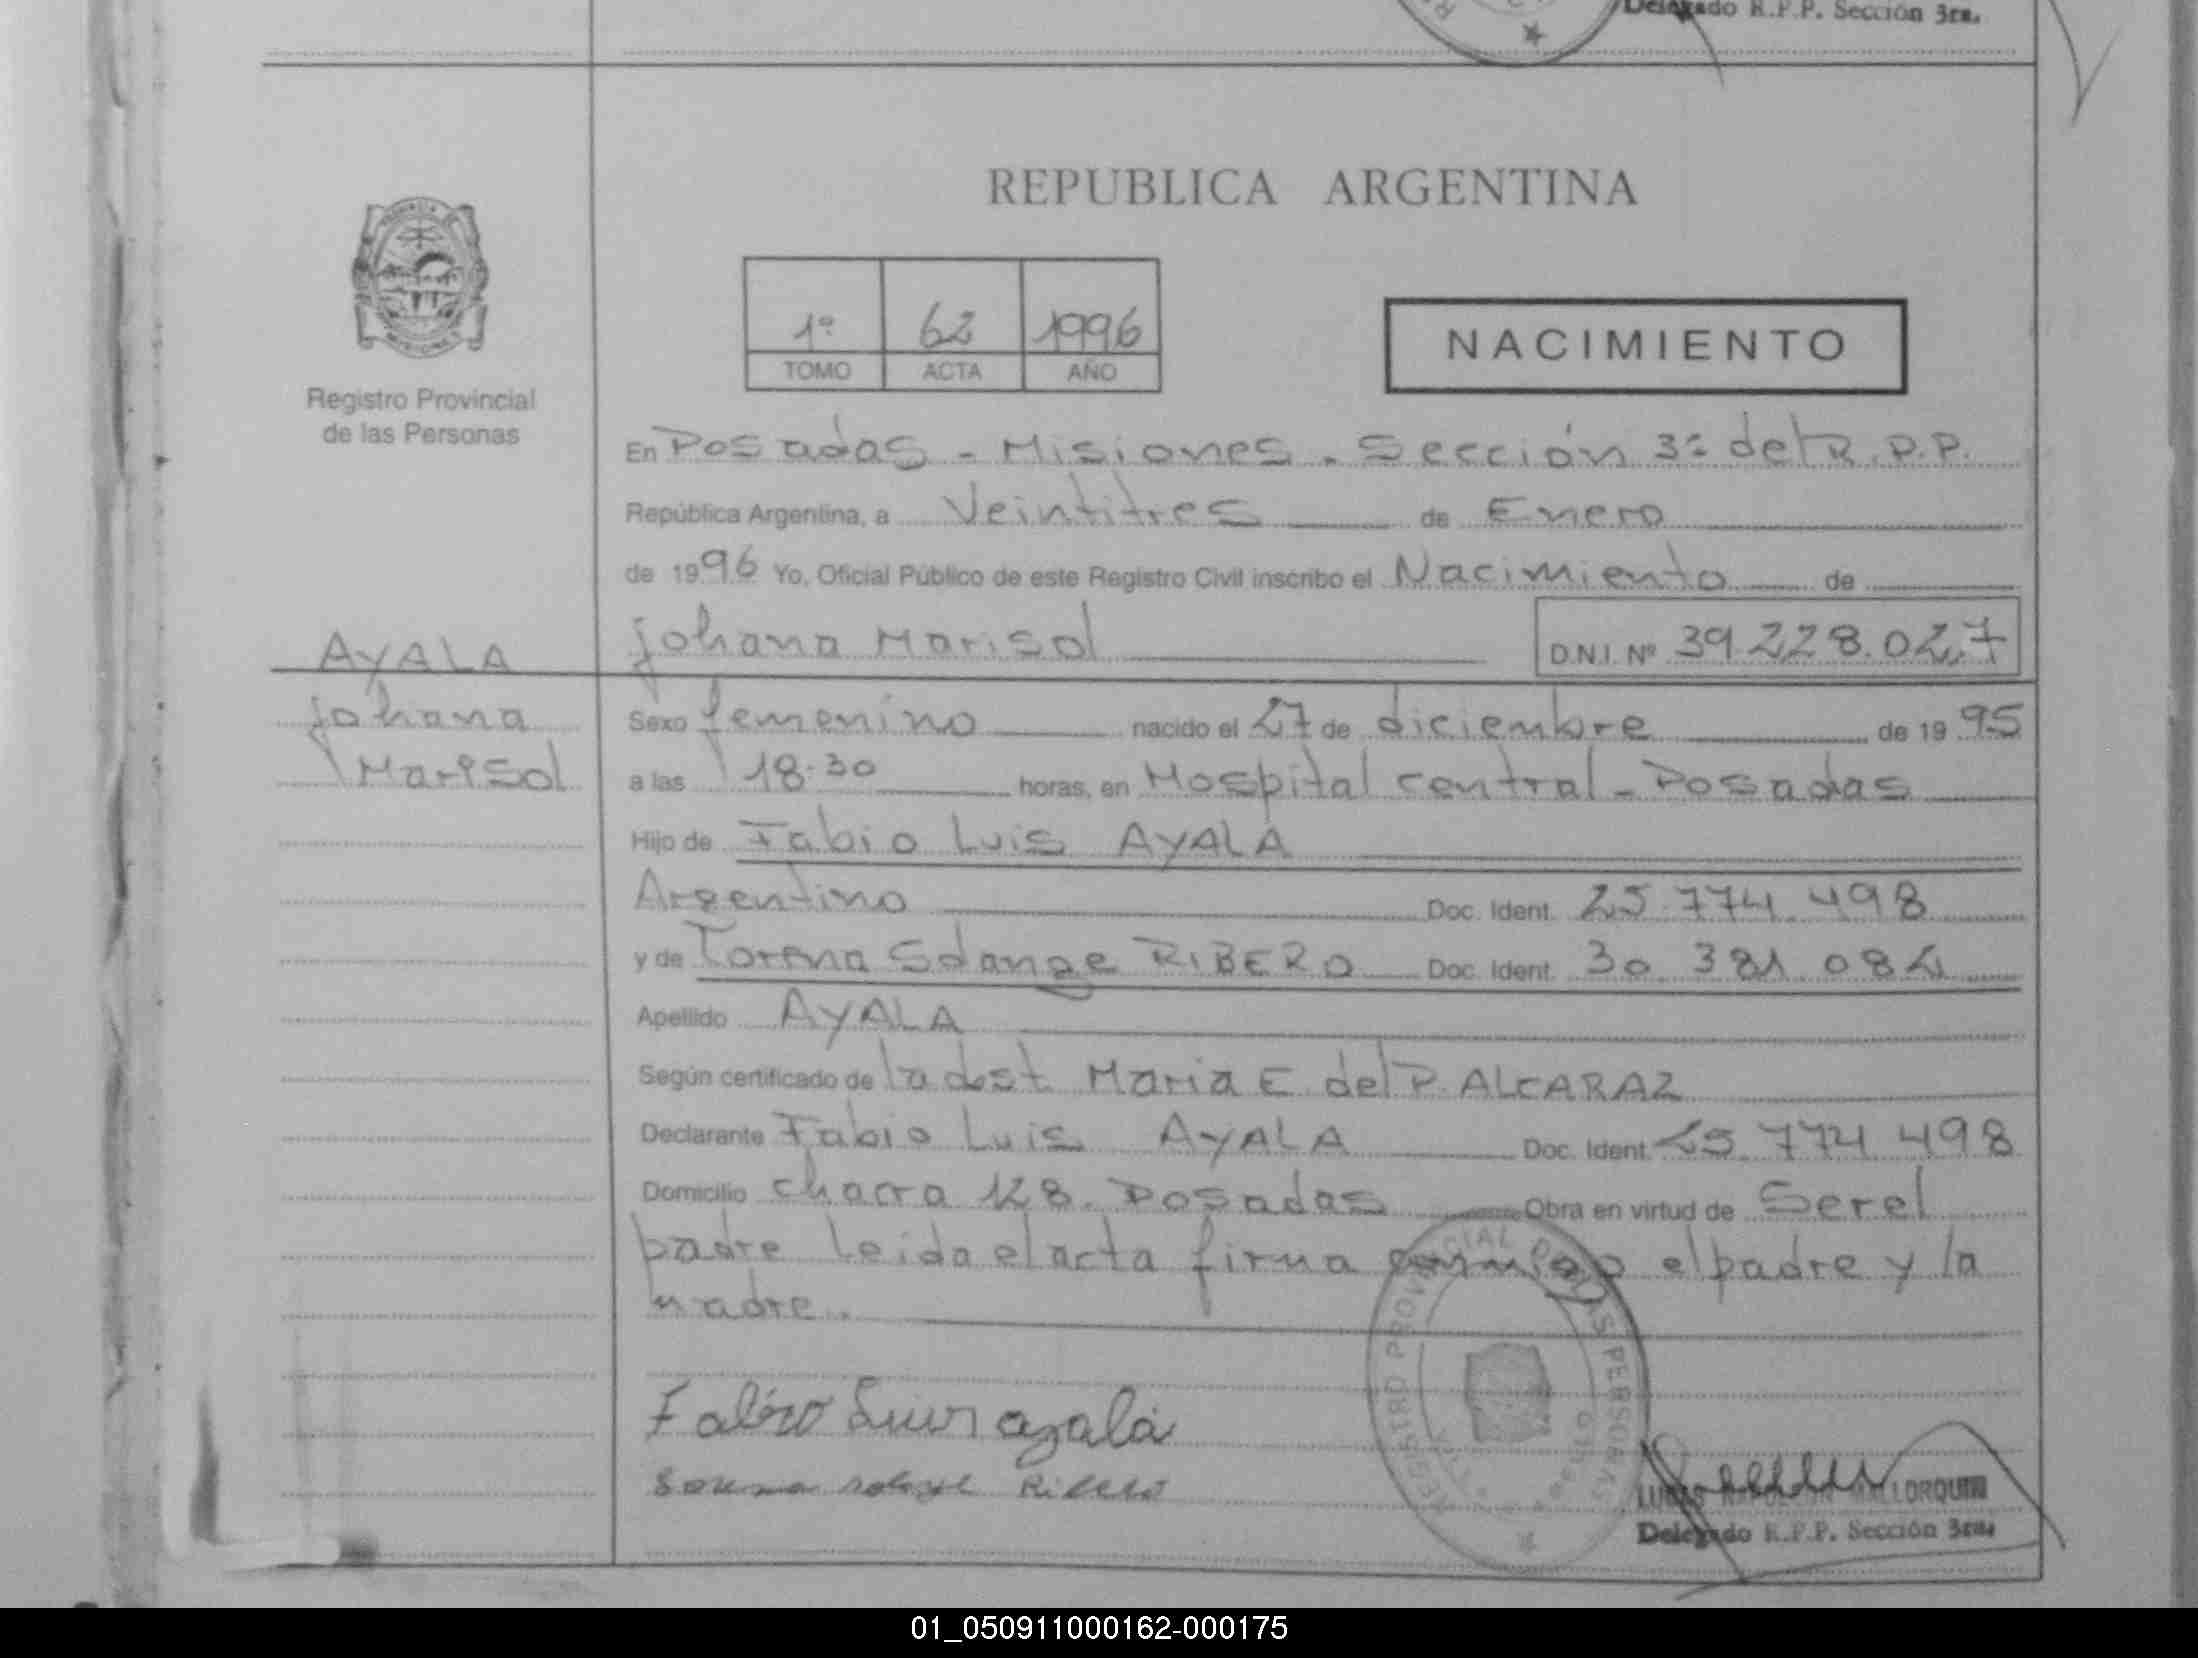 Delegado R.P.P. Sección 3ra.
REPUBLICA ARGENTINA
1º 62 1996
TOMO ACTA AÑO
NACIMIENTO
Registro Provincial
de las Personas
En Posadas - Misiones. Sección 3ª del R.P.P.
República Argentina, a Veintitres de Enero
de 1996 Yo, Oficial Público de este Registro Civil inscribo el Nacimiento de
AYALA
Johana Marisol
Johana Marisol D.N.I. Nº 39.228.027
Sexo femenino nacido el 27 de diciembre de 1995
a las 18.30 horas, en Hospital central - Posadas
Hijo de Fabio Luis AYALA
Argentino Doc. Ident. 25.774.498
y de Lorena Solange RIBERO Doc. Ident. 30 381 084
Apellido AYALA
Según certificado de la obst. Maria E. del P. ALCARAZ
Declarante Fabio Luis AYALA Doc. Ident. 25 774 498
Domicilio chacra 128. Posadas Obra en virtud de Ser el
padre Leida el acta firma conmigo el padre y la
madre.
REGISTRO PROVINCIAL DE LAS PERSONAS
Fabio Luis ayala
Ribero
LUCAS NAPOLEON MALLORQUIN
Delegado R.P.P. Sección 3ra.
01_050911000162-000175